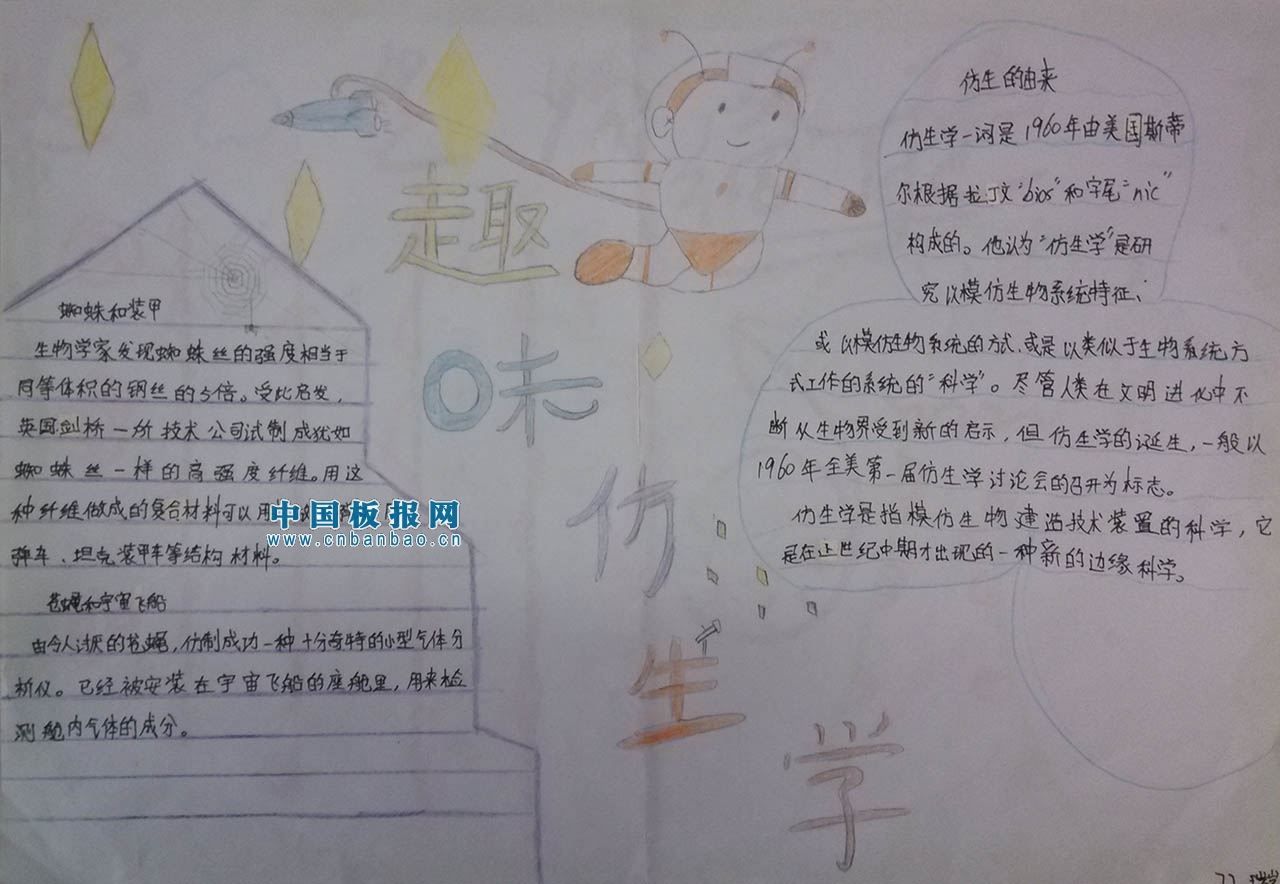 趣
味
仿
生
学
蜘蛛和装甲
生物学家发现蜘蛛丝的强度相当于
同等体积的钢丝的5倍。受此启发,
英国剑桥一所技术公司试制成犹如
蜘蛛丝一样的高强度纤维。用这
种纤维做成的复合材料可以用
弹车、坦克装甲车等结构材料。
苍蝇和宇宙飞船
由令人讨厌的苍蝇,仿制成功一种十分奇特的小型气体分
析仪。已经被安装在宇宙飞船的座舱里,用来检
测舱内气体的成分。
中国板报网
www.cnbanbao.cn
仿生的由来
仿生学一词是1960年由美国斯蒂
尔根据拉丁文“bios”和字尾“nic”
构成的。他认为“仿生学”是研
究以模仿生物系统特征、
或以模仿生物系统的方式、或是以类似于生物系统方
式工作的系统的“科学”。尽管人类在文明进化中不
断从生物界受到新的启示,但仿生学的诞生,一般以
1960年全美第一届仿生学讨论会的召开为标志。
仿生学是指模仿生物建造技术装置的科学,它
是在上世纪中期才出现的一种新的边缘科学。